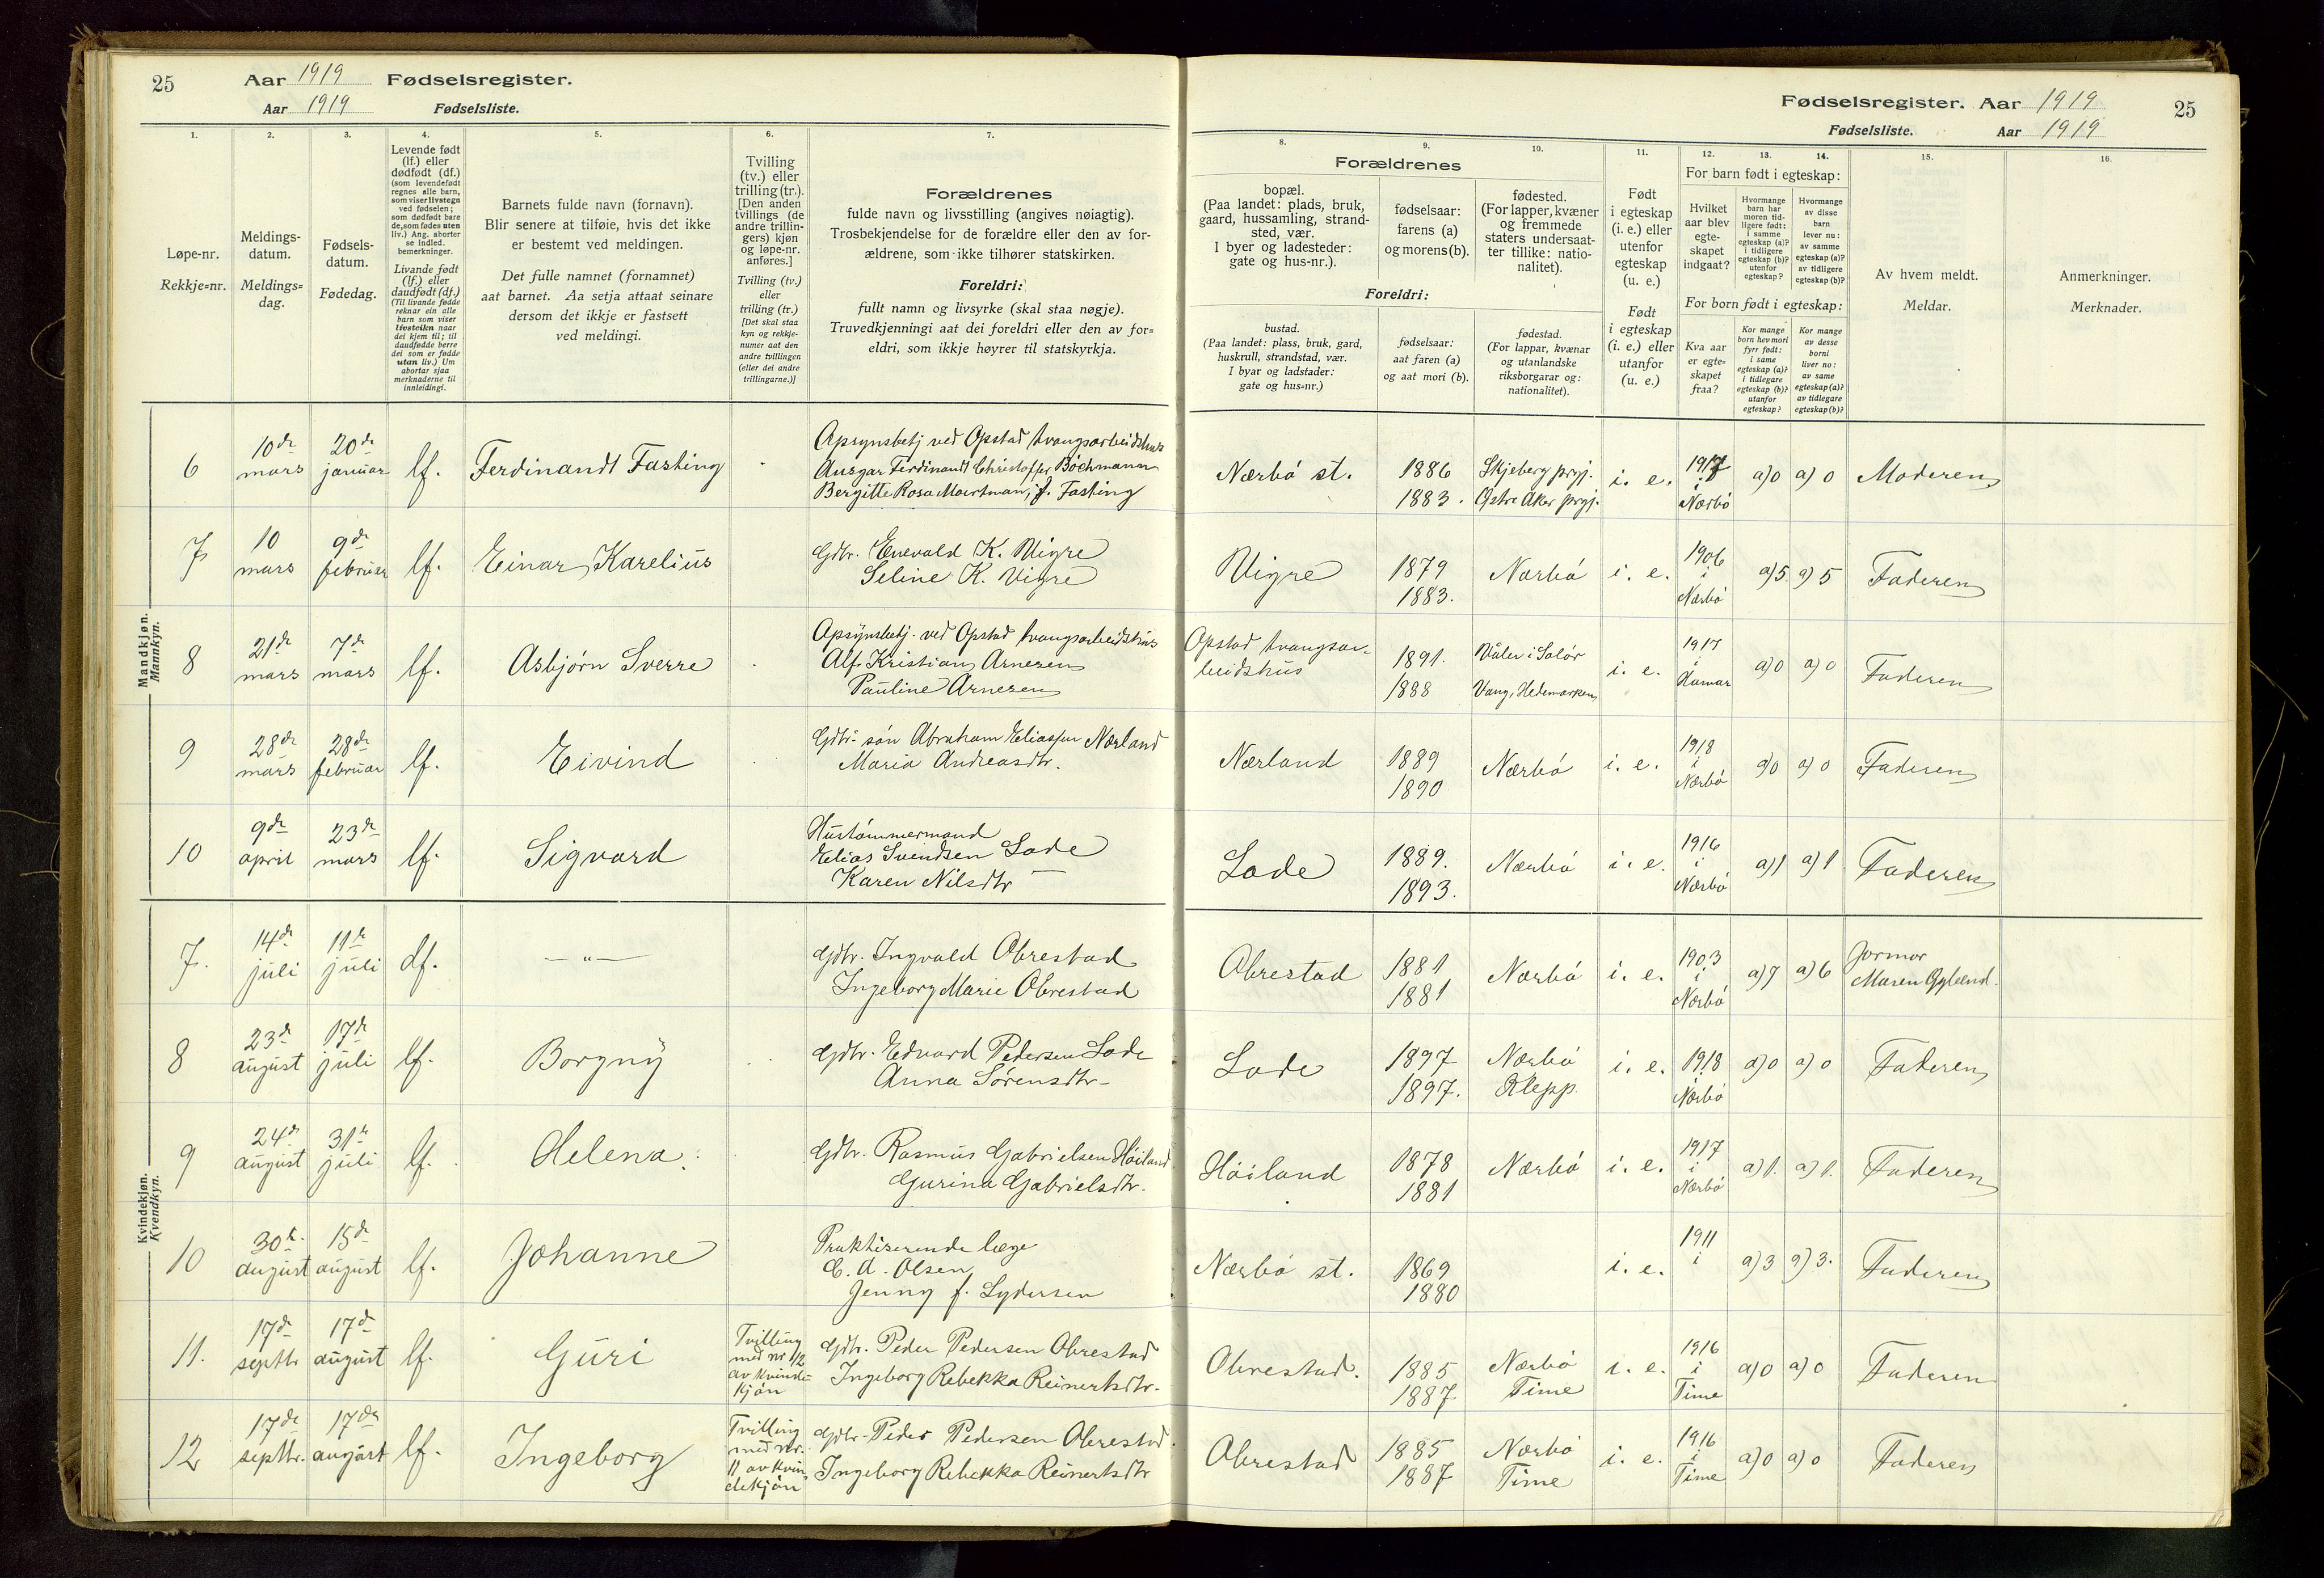 25
Aar 1919 Fødselsregister.
Aar 1919 Fødselsliste.
Fødselsregister. Aar 1919
25
Fødselsliste. Aar 1919
1. 2. 3. 4. 5. 6. 7. 8. 9. 10. 11. 12. 13. 14. 15. 16.
Løpe-nr.
Rekkje=nr.
Meldings-
datum.
Meldings=
dag.
Fødsels-
datum.
Fødedag.
Levende født
(lf.) eller
dødfødt (df.)
(som levendefødt
regnes alle barn,
som viser livstegn
ved fødselen;
som dødfødt bare
de, som fødes uten
liv.) Ang. aborter
se indled.
bemerkninger.
Livande født
(lf.) eller
daudfødt (df.)
(Til livande fødde
reknar ein alle
barn som viser
livsteikn naar
dei kjem til; til
daudfødde berre
dei som er fødde
utan liv.) Um
abortar sjaa
merknaderne til
innleidingi.
Barnets fulde navn (fornavn).
Blir senere at tilføie, hvis det ikke
er bestemt ved meldingen.
Det fulle namnet (fornamnet)
aat barnet. Aa setja attaat seinare
dersom det ikkje er fastsett
ved meldingi.
Tvilling
(tv.) eller
trilling (tr.).
[Den anden
tvillings (de
andre trillin-
gers) kjøn
og løpe-nr.
anføres.]
Tvilling (tv.)
eller
trilling (tr.)
[Det skal staa
kyn og rekkje-
numer aat den
andre tvillingen
(eller dei andre
trillingarne.)]
Forældrenes
fulde navn og livsstilling (angives nøiagtig).
Trosbekjendelse for de forældre eller den av for-
ældrene, som ikke tilhører statskirken.
Foreldri:
fullt namn og livsyrke (skal staa nøgje).
Truvedkjenningi aat dei foreldri eller den av for=
eldri, som ikkje høyrer til statskyrkja.
Forældrenes
bopæl.
(Paa landet: plads, bruk,
gaard, hussamling, strand-
sted, vær.
I byer og ladesteder:
gate og hus-nr.).
fødselsaar:
farens (a)
og morens (b).
fødested.
(For lapper, kvæner
og fremmede
staters undersaat-
ter tillike: natio-
nalitet).
Foreldri:
bustad.
(Paa landet: plass, bruk, gard,
huskrull, strandstad, vær.
I byar og ladstader:
gate og hus=nr.)
fødselsaar:
aat faren (a)
og aat mori (b).
fødestad.
(For lappar, kvænar
og utanlandske
riksborgarar og:
nationalitet).
Født
i egteskap
(i. e.) eller
utenfor
egteskap
(u. e.)
Født
i egteskap
(i. e.) eller
utanfor
(u. e.)
For barn født i egteskap:
Hvilket
aar blev
egte-
skapet
indgaat?
Hvormange
barn har
moren tid-
ligere født:
i samme
egteskap (a)?
i tidligere
egteskap (b)?
utenfor
egteskap?
Hvormange
av disse
barn
lever nu:
av samme
egteskap (a)?
av tidligere
egteskap (b)?
For born født i egteskap:
Kva aar
er egte=
skapet
fraa?
Kor mange
born hev mori
fyrr født:
i same
egteskap (a)?
i tidlegare
egteskap (b)?
utanfor
egteskap?
Kor mange
av desse
borni
liver no:
av same
egteskap (a)?
av tidlegare
egteskap (b)?
Av hvem meldt.
Meldar.
Anmerkninger.
Merknader.
Mandkjøn.
Mannkyn.
6 10de mars 20de januar lf. Ferdinandt Fasting
Opsynsbetj ved Opstad tvangsarbeidshus
Ansgar Ferdinandt Christoffer Bóchmann
Bergitte Rosa f. Fasting
Nærbó st. 1886 1883. Skjeberg prgj. Østre Aker prgj. i. e. 1917 i Nærbó a) 0 a) 0 Moderen
7 10 mars 9de februar lf. Einar Karelius
Gdbr. Enevald K. Vigre
Seline K. Vigre
Vigre 1879 1883. Nærbó i. e. 1906 i Nærbó a) 5 a) 5 Faderen
8 21de mars 7de mars lf. Asbjørn Sverre
Opsynsbetj. ved Opstad tvangsarbeidshus
Alf Kristian Arnesen
Pauline Arnesen
Opstad tvangsar-
beidshus 1891. 1888 Våler i Solór Vang, Hedemarken i. e. 1917 i Hamar a) 0 a) 0 Faderen
9 28de mars 28de februar lf. Eivind
Gdbr. són Abraham Eliassen Nærland
Maria Andreasdtr.
Nærland 1889 1890 Nærbó i. e. 1918 i Nærbó a) 0 a) 0 Faderen
10 9de april 23de mars lf. Sigvard
Hustómmermand
Elias Svendsen Lode
Karen Nilsdtr —
Lode 1889. 1893. Nærbó i. e. 1916 i Nærbó a) 1 a) 1 Faderen
Kvindekjøn.
Kvendkyn.
7. 14de juli 11te juli df. — " —
Gdbr. Ingvald Obrestad
Ingeborg Marie Obrestad
Obrestad 1881 1881 Nærbó i. e. 1903 i Nærbó a) 7 a) 6 Jormor
Maren
8 23de august 17de juli lf. Borgny
Gdbr. Edvard Pedersen Lode
Anna Sórensdtr —
Lode 1897 1897. Nærbó Klepp. i. e. 1918 i Nærbó a) 0 a) 0 Faderen
9 24de august 31te juli lf. Helena.
Gdbr. Rasmus Gabrielsen Hóiland
Gurina Gabrielsdtr.
Hóiland 1878 1881 Nærbó i. e. 1917 i Nærbó a) 1. a) 1. Faderen
10 30te august 15de august lf. Johanne
Praktiserende læge
C. A. Olsen
Jenny f. Lydersen
Nærbó st. 1869 1880 i. e. 1911 i a) 3 a) 3. Faderen
11. 17de septbr 17de august lf. Guri Tvilling
med nr 12
av kvinde-
kjón
Gdbr. Peder Pedersen Obrestad
Ingeborg Rebekka Reinertsdtr.
Obrestad. 1885 1887 Nærbó Time i. e. 1916 i Time a) 0 a) 0 Faderen
12 17de septbr. 17de august lf. Ingeborg Tvilling
med nr.
11 av kvin
dekjón
Gdbr. Peder Pedersen Obrestad.
Ingeborg Rebekka Reinertsdtr
Obrestad 1885 1887 Nærbó Time i. e. 1916 i Time a) 0 a) 0 Faderen